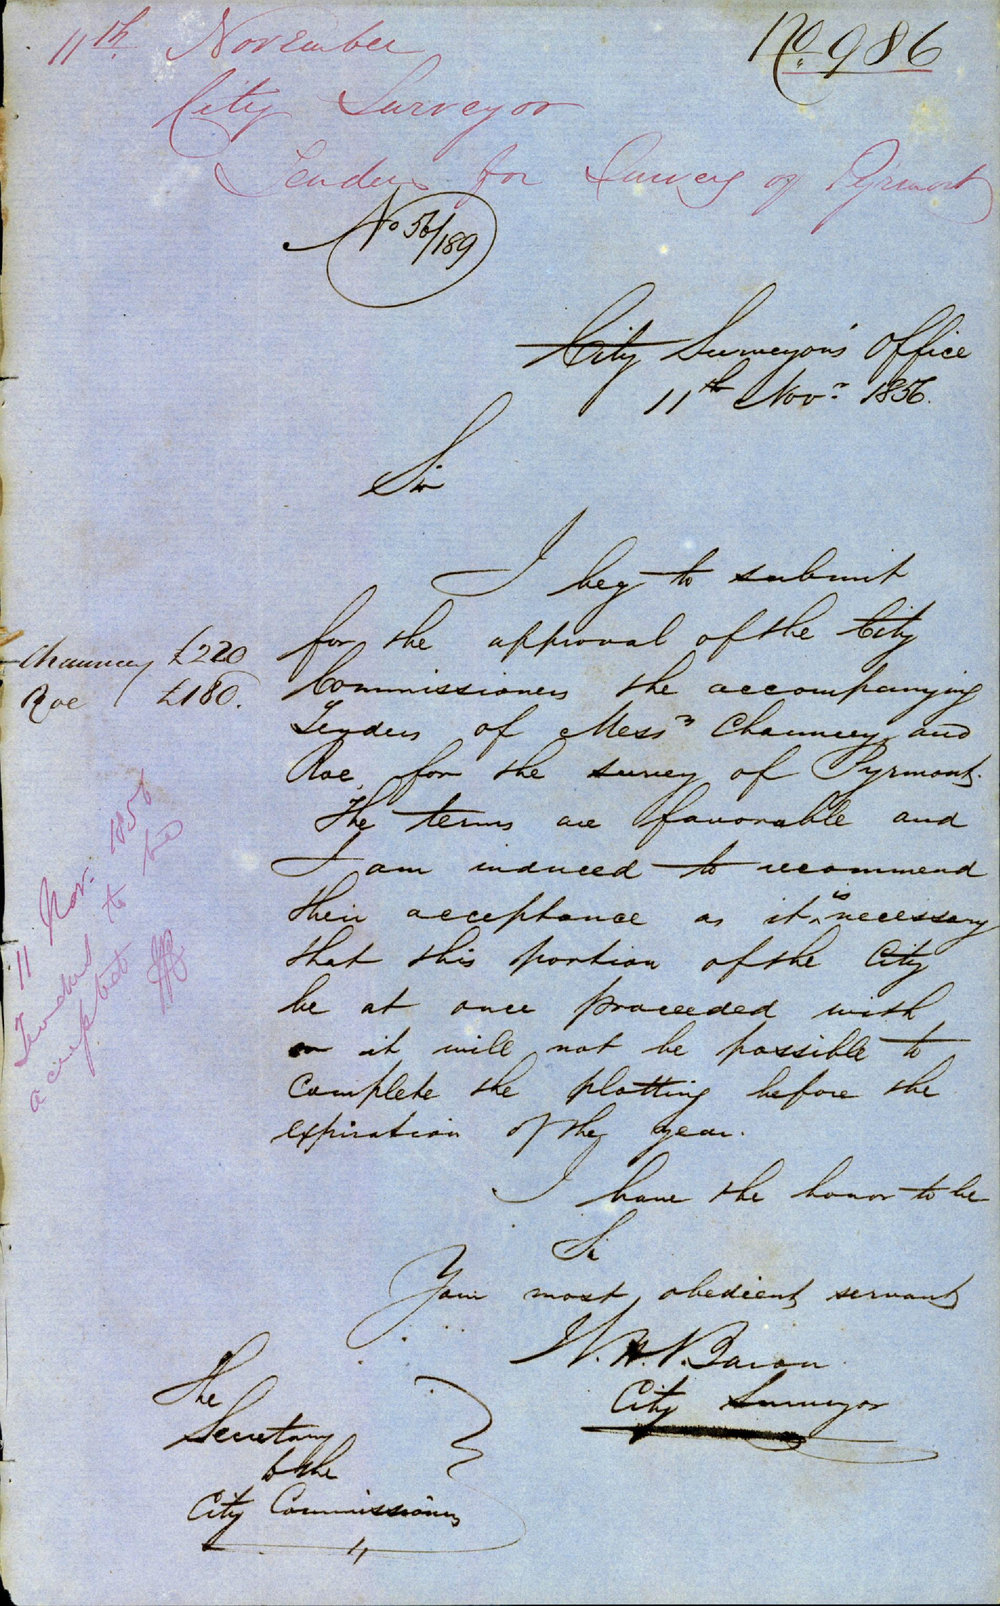 11th November
No 986
City Surveyor
Tenders for Survey of Pyrmont
No 56/189
City Surveyor's Office
11th Novr 1856.
Sir
I beg to submit
for the approval of the City
Commissioners the accompanying
Tenders of Messrs Chauncey and
Roe, for the survey of Pyrmont.
The terms are favorable and
I am induced to recommend
their acceptance as it is necessary
that this portion of the City
be at once proceeded with
or it will not be possible to
complete the plotting before the
expiration of the year.
I have the honor to be
Sir
Your most obedient servant
City Surveyor
The
Secretary
to the
City Commissioners
Chauncey £220
Roe £180.
11 Nov. 1856
Tenders to be
accepted